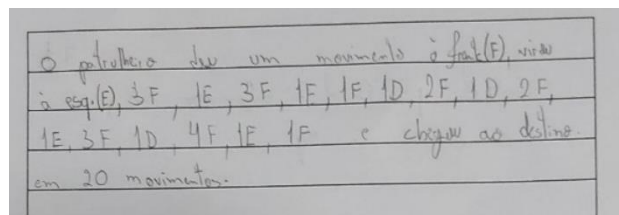 O patrulheiro deu um movimento à frente(F), virou
à esq.(E), 3F, 1E, 3F, 1E, 1F, 1D, 2F, 1D, 2F,
1E, 3F, 1D, 4F, 1E, 1F e chegou ao destino.
em 20 movimentos.